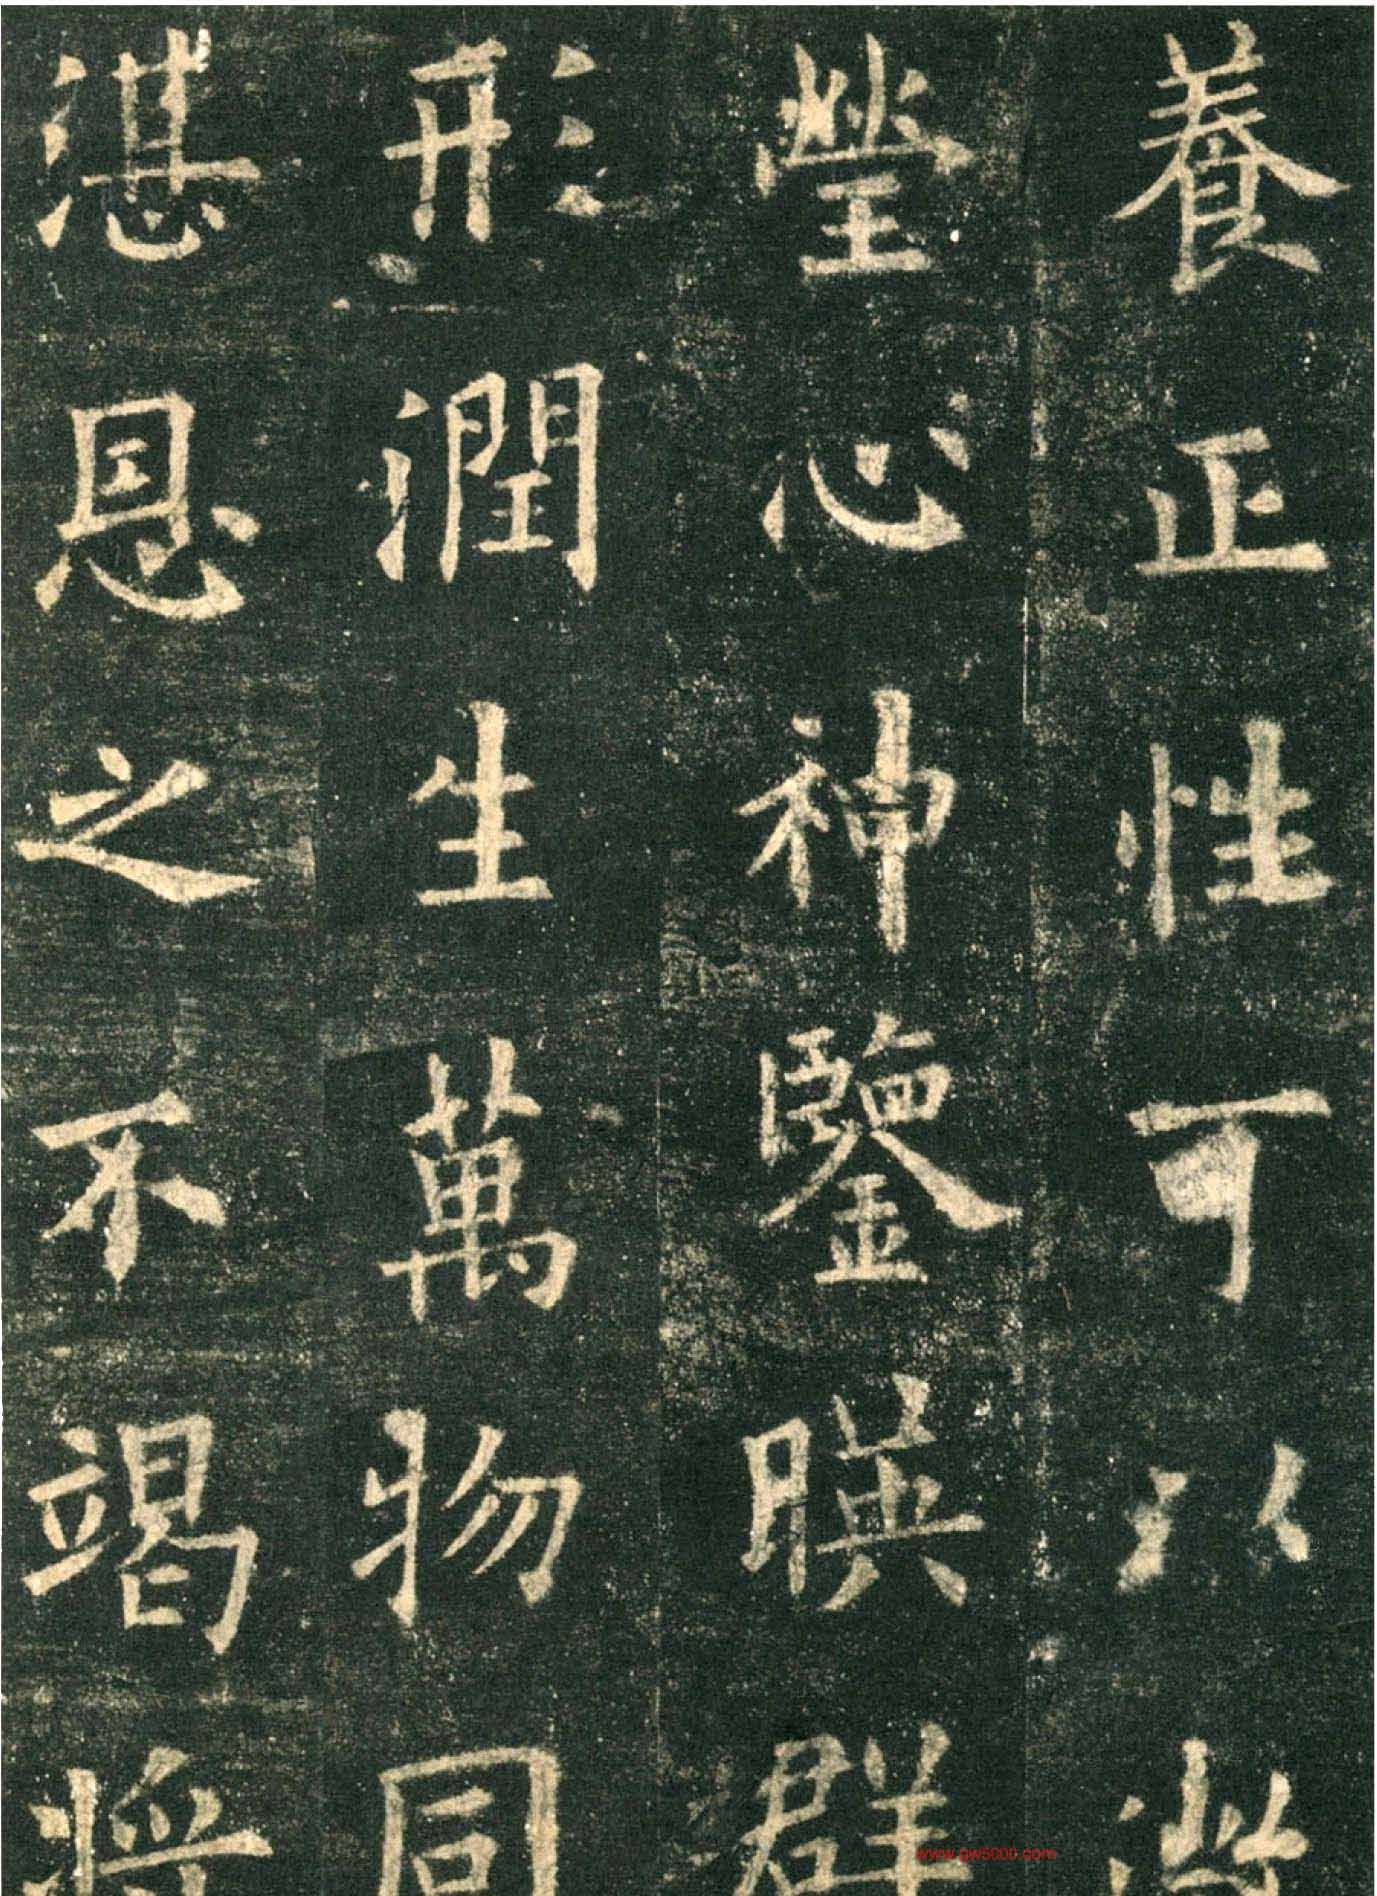 養正性可以澂
瑩心神鑒暎群
形潤生萬物同
湛恩之不竭將
www.gw5000.com